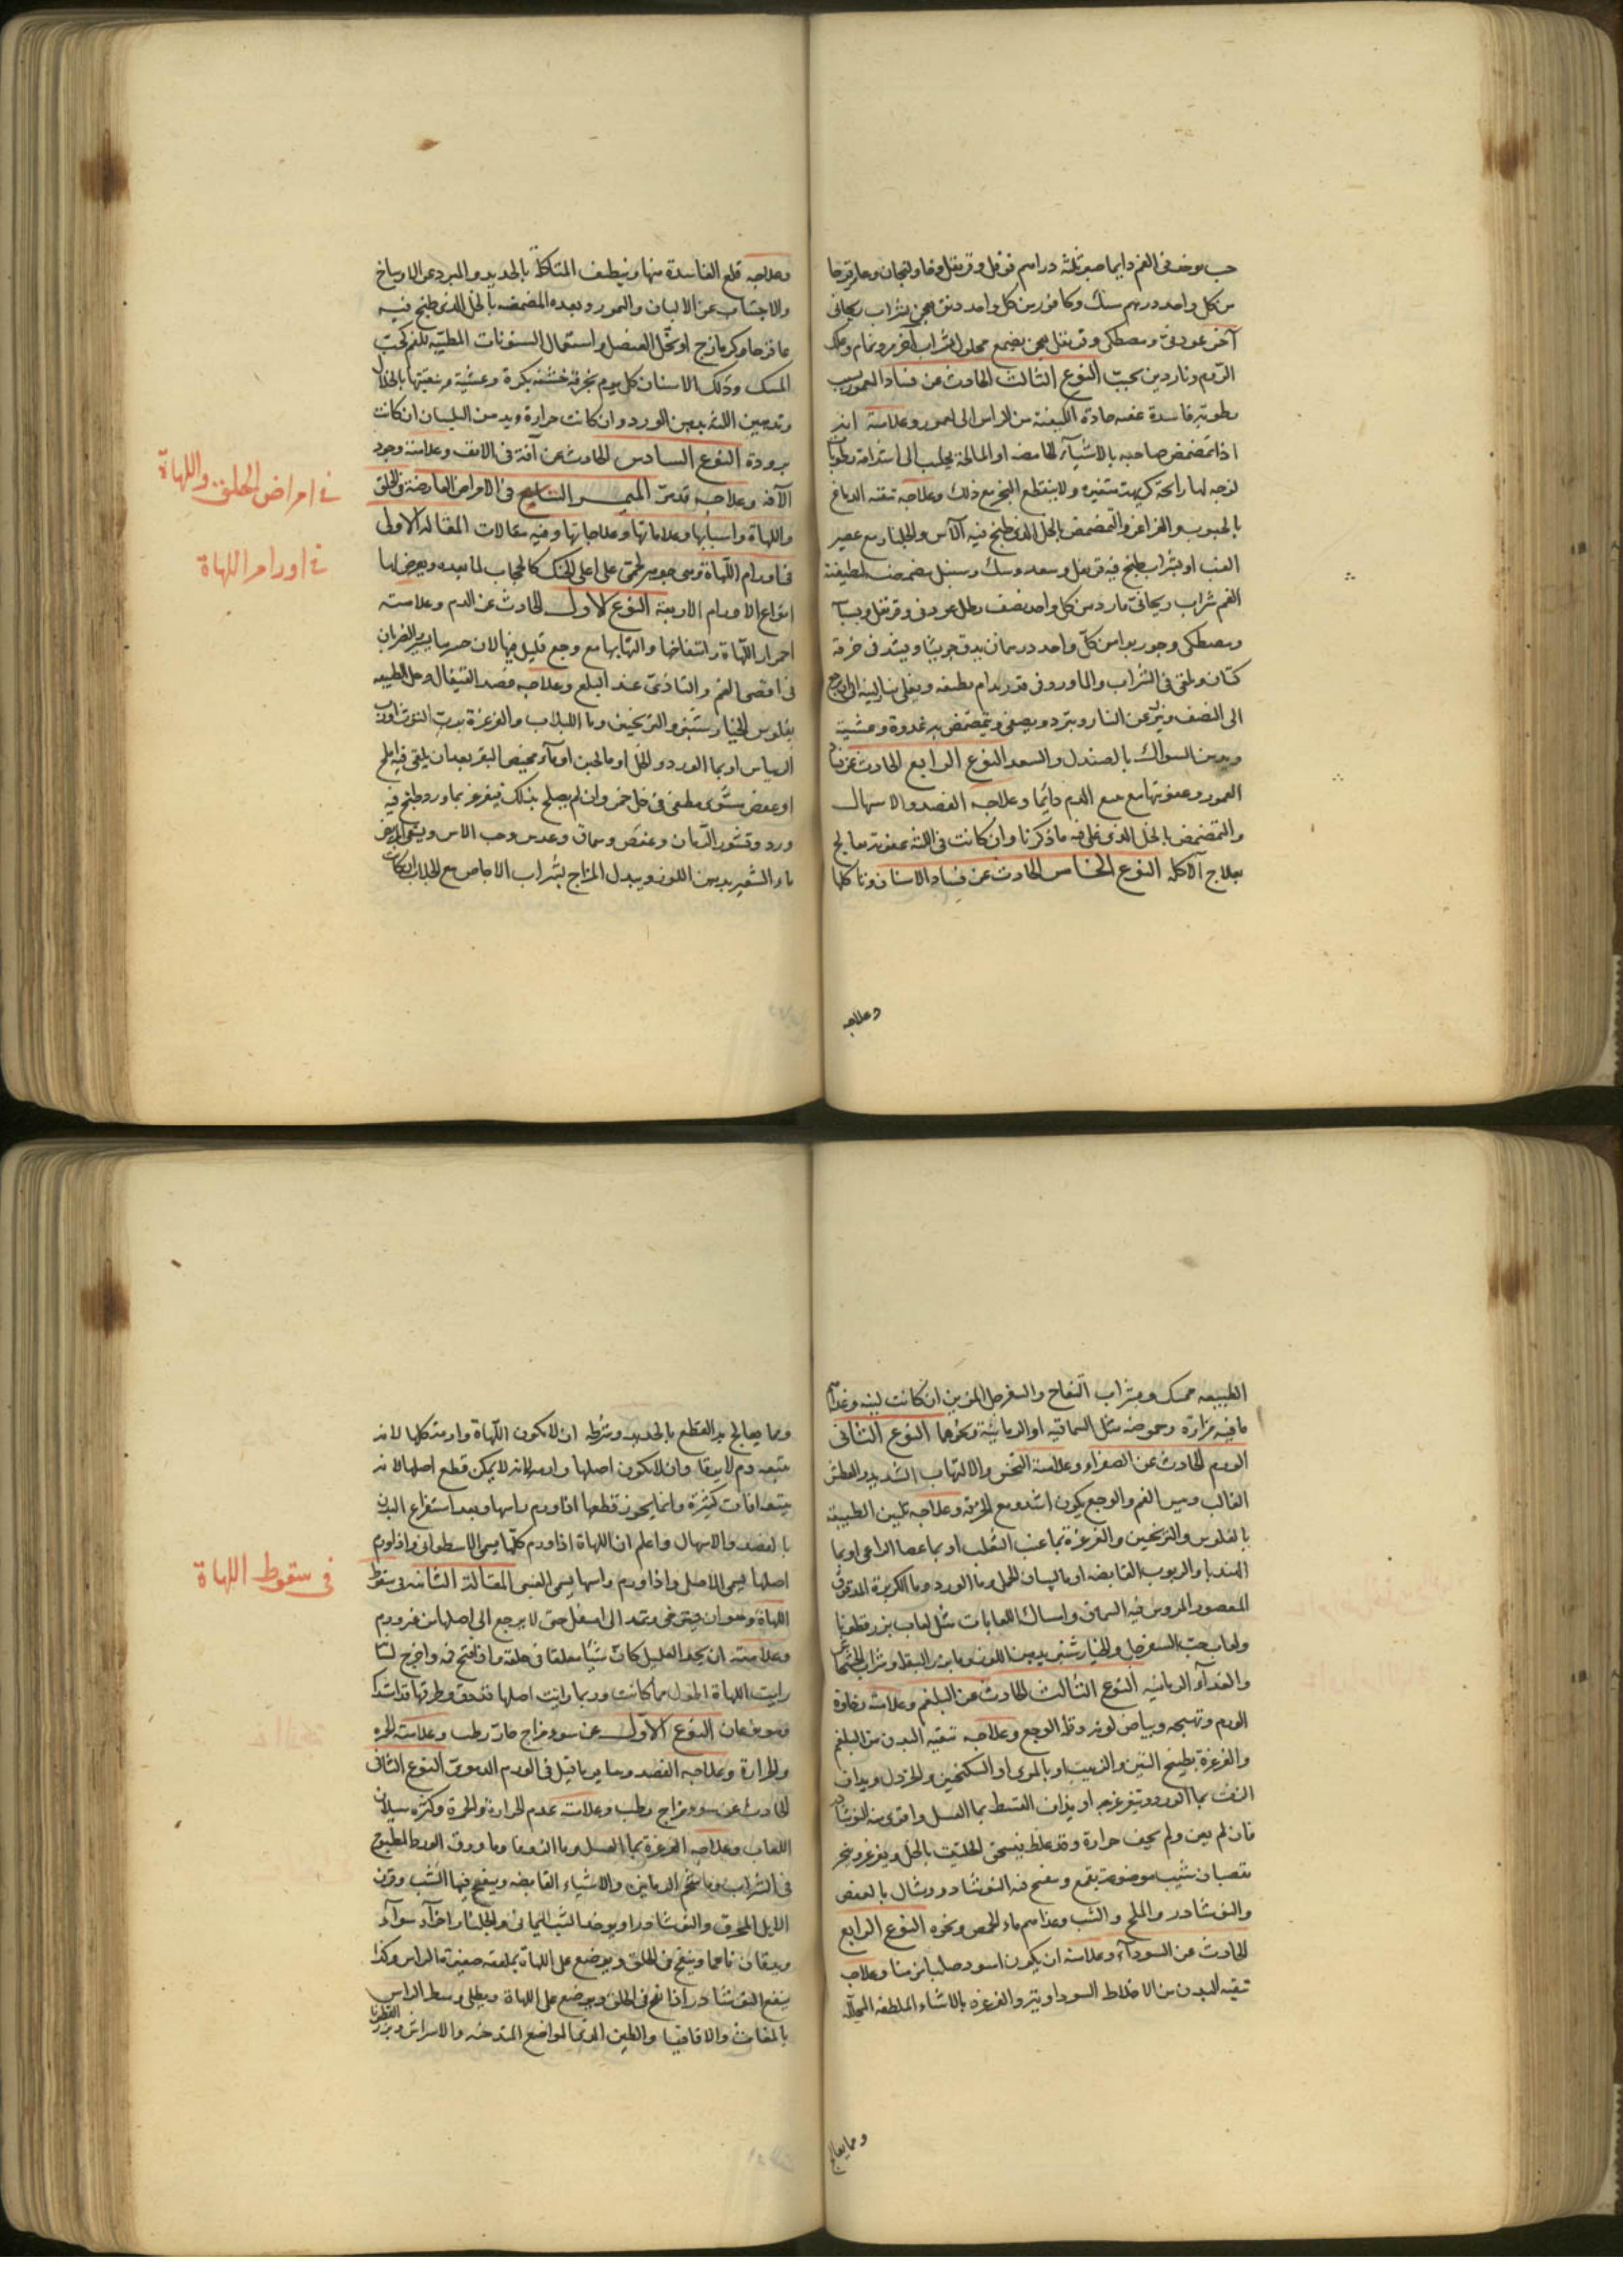 حب يوخذ فى الفم دايما صبر ثلثة دراهم فوفل وقرنفل وخاولنجان وعاقرقرحا
من كل واحد درهم سك وكافور من كل واحد دنق يعجن بشراب ريحانى
آخر عود نى ومصطكى وقرنفل يعجن بصمغ محلول بشراب آخر مرو نمام وعلك
الروم وناردين يحبب النوع الثالث الحادث عن فساد العمور بسبب
رطوبة فاسدة عفنه حادة الكيفية من الراس الى العمور وعلامته انه
اذا تمضمض صاحبه بالاشياء الحامضه او المالحة يجلب الى فمه رطوبة
لزجه لها رائحة كريهة متغيره ولا ينقطع البخر مع ذلك وعلاجه تنقية الدماغ
بالحبوب والغراغر والتمضمض بالخل الذى طبخ فيه الآس والجلنار مع عصير
العنب او بشراب طبخ فيه قرنفل وسعد وسك وسنبل مضمضه لطيفة
الفم شراب ريحانى مارد من كل واحد نصف رطل عود نى وقرنفل وبسباسه
ومصطكى وجوزبوا من كل واحد درهمان يدق جريشا ويشد فى خرقة
كتان ويلقى فى الشراب والماورد فى قدر برام نظيفه ويغلى بنار لينه الى ان يرجع
الى النصف وينزل عن النار ويبرد ويصفى ويتمضمض به غدوة وعشية
ويدمن السواك بالصندل والسعد النوع الرابع الحادث عن فساد
العمور وعفونتها مع الدم دائما وعلاجه الفصد والاسهال
والتمضمض بالخل الذى غلى فيه ما ذكرنا وان كانت فى اللثة عفونة تعالج
بعلاج الآكله النوع الخامس الحادث عن فساد الاسنان وتاكلها
وعلاجه
وعلاجه قلع الفاسدة منها وتنظيف المتاكلة بالحديد والمبرد عن الاوساخ
والاجتناب عن الالبان والتمور وبعده المضمضه بالخل الذى طبخ فيه
عاقرقرحا وكزمازج او بخل العنصل واستعمال السنونات المطيبة للفم كحب
المسك ودلك الاسنان كل يوم بخرقة خشنه بكرة وعشية وتنقيتها بالخلال
وتدهين اللثه بدهن الورد وان كانت حرارة وبدهن البلسان ان كانت
برودة النوع السادس الحادث عن آفة فى الانف وعلامته وجود
الآفه وعلاجه قد مر التاسع فى الامراض العارضة فى الحلق
واللهاة واسبابها وعلاماتها وعلاجاتها وفيه مقالات المقاله الاولى
فى اورام اللهاة وهى جوهر لحمى على اعلى الحنك كالحجاب لما بعده ويعرض لها
انواع الاورام الاربعة النوع الاول الحادث عن الدم وعلامته
احمرار اللهاة وانتفاخها والتهابها مع وجع قليل
فى اقصى الفم والتاذى عند البلع وعلاجه فصد القيفال وحل الطبيعه
بفلوس الخيارشنبر والترنجبين وماء اللبلاب والغرغرة برب التوث او رب
الريباس او بماء الورد والخل او ماء الجبن او ماء مخيض البقر بعد ان يلقى فيه ملح
او عفص مشوى مطفى فى خل خمر وان لم يصلح بذلك تيغرغر بماورد وطبخ فيه
ورد وقشور الرمان وعفص وسماق وعدس وحب الاس ويسقى المريض
ماء الشعير بدهن اللوز ويبدل المزاج بشراب الاجاص مع الجلاب ان كانت
فى امراض الحلق واللهاة
فى اورام اللهاة
الطبيعه ممسكه وبشراب التفاح والسفرجل المزين ان كانت لينه وغذاء
ما فيه مزازة وحموضه مثل السماقيه او الرمانية ونحوها النوع الثانى
الورم الحادث عن الصفراء وعلامته النخس والالتهاب الشديد والعطش
الغالب ويبس الفم والوجع يكون اشد ومع الحرقة وعلاجه تليين الطبيعة
بالفلوس والترنجبين والغرغرة بماء عنب الثعلب او بماء عصا الراعى او بماء
الهندبا والربوب القابضه او ماء لسان الحمل وماء الورد وماء الكزبرة المدقوق
المعصور الممروس فيه السماق وامساك اللعابات مثل لعاب بزرقطونا
ولعاب حب السفرجل والخيارشنبر بدهن اللوز وماء بزر البقله وشراب الخشخاش
والغذاء الرمانيه النوع الثالث الحادث عن البلغم وعلامته رخاوة
الورم وتهبجه وبياض لونه وقلة الوجع وعلاجه تنقيه البدن من البلغم
والغرغرة بطبيخ التين والزبيب او بالمرى او السكنجبين والخردل ويداف
الزفت بماء الورد ويتغرغر به او يداف القسط بماء العسل واقوى منه النوشادر
فان لم يبن ولم يخف حرارة وقد غلظ فيسحق الحلتيت بالخل ويغرغر ويبخر
بقصبان شبت موضوعة بقمع وينفخ فيه النوشادر وتشال بالعفص
والنوشادر والملح والشب وغذاءهم ماء الحمص ونحوه النوع الرابع
الحادث عن السوداء وعلامته ان يكون اسود صلبا مزمنا وعلاجه
تنقيه البدن من الاخلاط السوداويه والغرغره بالاشياء الملطفه المحلله
ومما يعالج
ومما يعالج به القطع بالحديد وشرطه ان لا يكون اللهاة وارمة كلها لانه
يتبعه دم لا يرقا وان لا يكون اصلها وارما لانه لا يمكن قطع اصلها لانه
يتبعه افات كثيرة وانما يجوز قطعها اذا ورم راسها وبعد استفراغ البدن
بالفصد والاسهال واعلم ان اللهاة اذا ورم كلها يسمى الاسطوانى واذا ورم
اصلها يسمى الاصلى واذا ورم راسها يسمى العنبى المقالة الثانيه فى سقوط
اللهاة وهو ان يسترخى ويمتد الى اسفل حتى لا يرجع الى اصلها من غير ورم
وعلامته ان يجد العليل كان شيئا معلقا فى حلقه واذا فتح فمه واخرج لسانه
رايت اللهاة اطول مما كانت وربما رايت اصلها قد دق وطرفها قد اشتد
وهو نوعان النوع الاول عن سوء مزاج حار رطب وعلامته الحمره
والحرارة وعلاجه الفصد وساير ما قيل فى الورم الدموى النوع الثانى
الحادث عن سوء مزاج رطب وعلامته عدم الحرارة والحمرة وكثره سيلان
اللعاب وعلاجه الغرغرة بماء العسل وماء الزوفا وماء ورق الورد المطبوخ
فى الشراب وماء شحم الرمانين والاشياء القابضه وينفخ فيها الشب وقرن
الايل المحرق والنوشادر او يوخذ الشب اليمانى والجلنار اجزاء سواء
ويدقان ناعما وينفخ فى الحلق ويوضع على اللهاة بملعقه صغيرة الراس وكذا
ينفع النوشادر اذا نفخ فى الحلق ويوضع على اللهاة ويطلى وسط الراس
بالمغاث والاقاقيا والطين الذى فى المواضع المتدخنه والاسراش وبزر القطونا
فى سقوط اللهاة